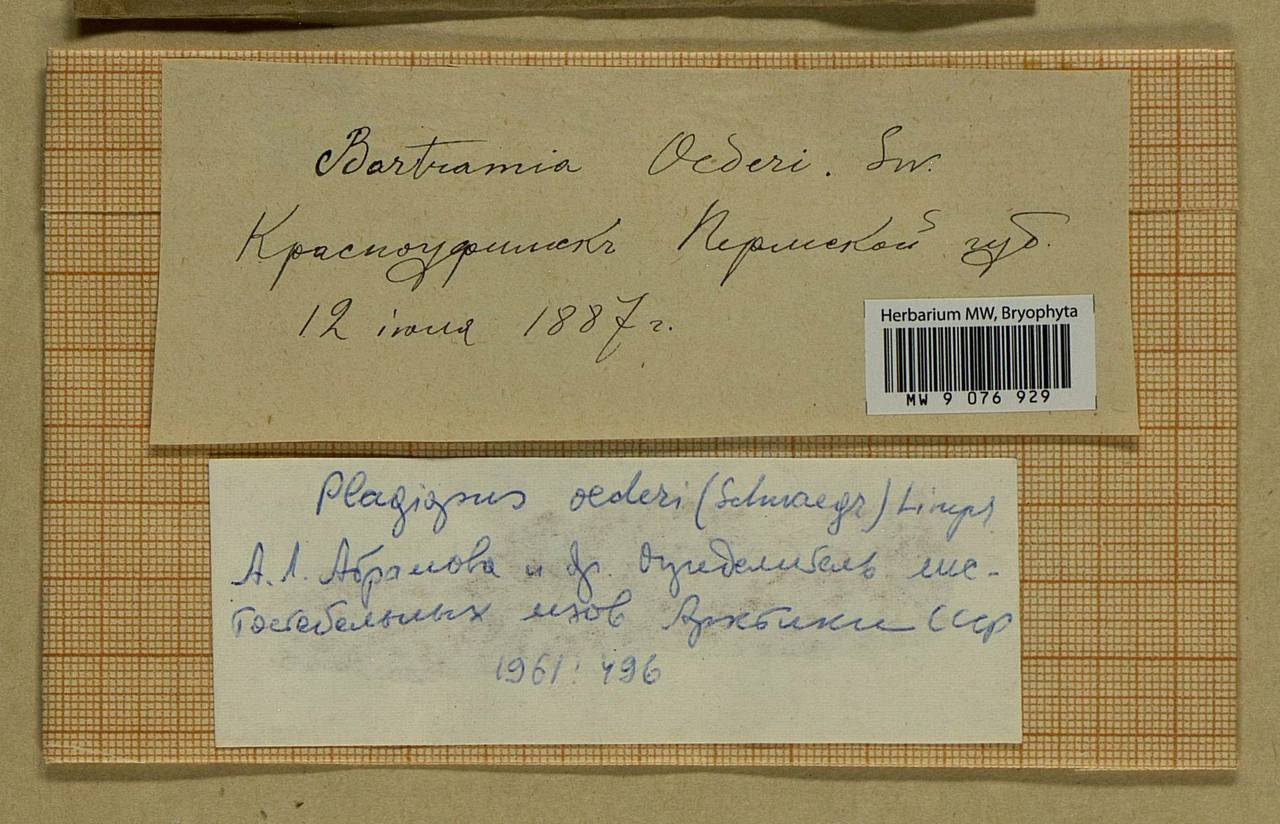 Bartramia Oederi. Sw.
Красноуфимскъ Пермской губ.
12 іюля 1887 г.
Herbarium MW, Bryophyta
MW 9 076 929
Plagiopus oederi (Schwaegr) Limpr
А.Л. Абрамова и др. Определитель лис-
тостебельных мхов Арктики СССР
1961: 496